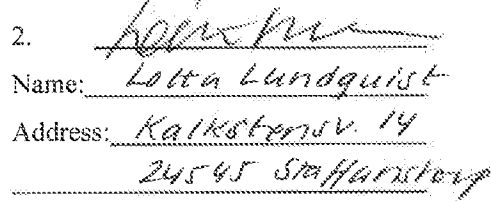 2.
Name: Lotta Lundquist
Address: Kalkstensv. 14
24545 Staffanstorp